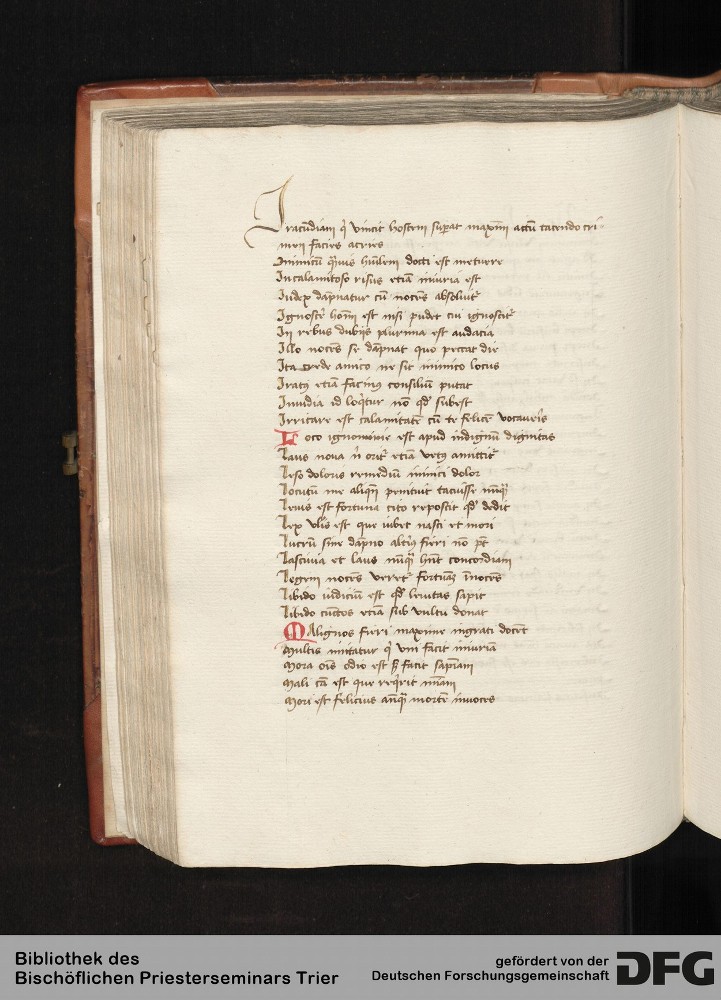 Iracūdiam q̇ vincit hostem suꝑat maxim̄ actū tacendo cri-
men facies acries
Inimicū q̄uis hūilem docti est metuere
In calamitoso risus etiā iniuria est
Iudex dāpnatur cū nocēs absoluit͛
Ignoscē hom̄ est nisi pudet cui ignoscit͛
In rebus dubijs plurima est audacia
Illo nocēs se dāpnat quo peccat die
Ita crede amico ne sit inimico locus
Iratꝰ etiā facinꝰ consiliū putat
Inuidia id loq̇tur nō qď subest
Irritare est calamitatē cū te felicē vocaueris
Loco ignominie est apud indignū dignitas
Laus noua n̄ orit͛ etiā vetꝰ amittit͛
Leso doloris remediū inimici dolor
Locutū me aliqn̄ penituit tacuisse nūq̄
Leuis est fortuna cito reposcit qď dedit
Lex vl̄is est que iubet nasci et mori
Lucrū sine dāpno altiꝰ fieri nō pt̄
Lasciuia et laus nūq̄ hn̄t concordiam
Legem nocēs veret͛ fortunā īnocēs
Libido iudiciū est qď leuitas sapit
Libido cūctos etiā sub vultu donat
MAlignos fieri maxime ingrati docēt
Multis minatur q̇ vni facit iniuriā
Mora oīs odio est sꝫ facit sapīam
Mali cā est que req̇rit
Mori est felicius anq̄ mortē inuoces
Bibliothek des
Bischöflichen Priesterseminars Trier
gefördert von der
Deutschen Forschungsgemeinschaft
DFG